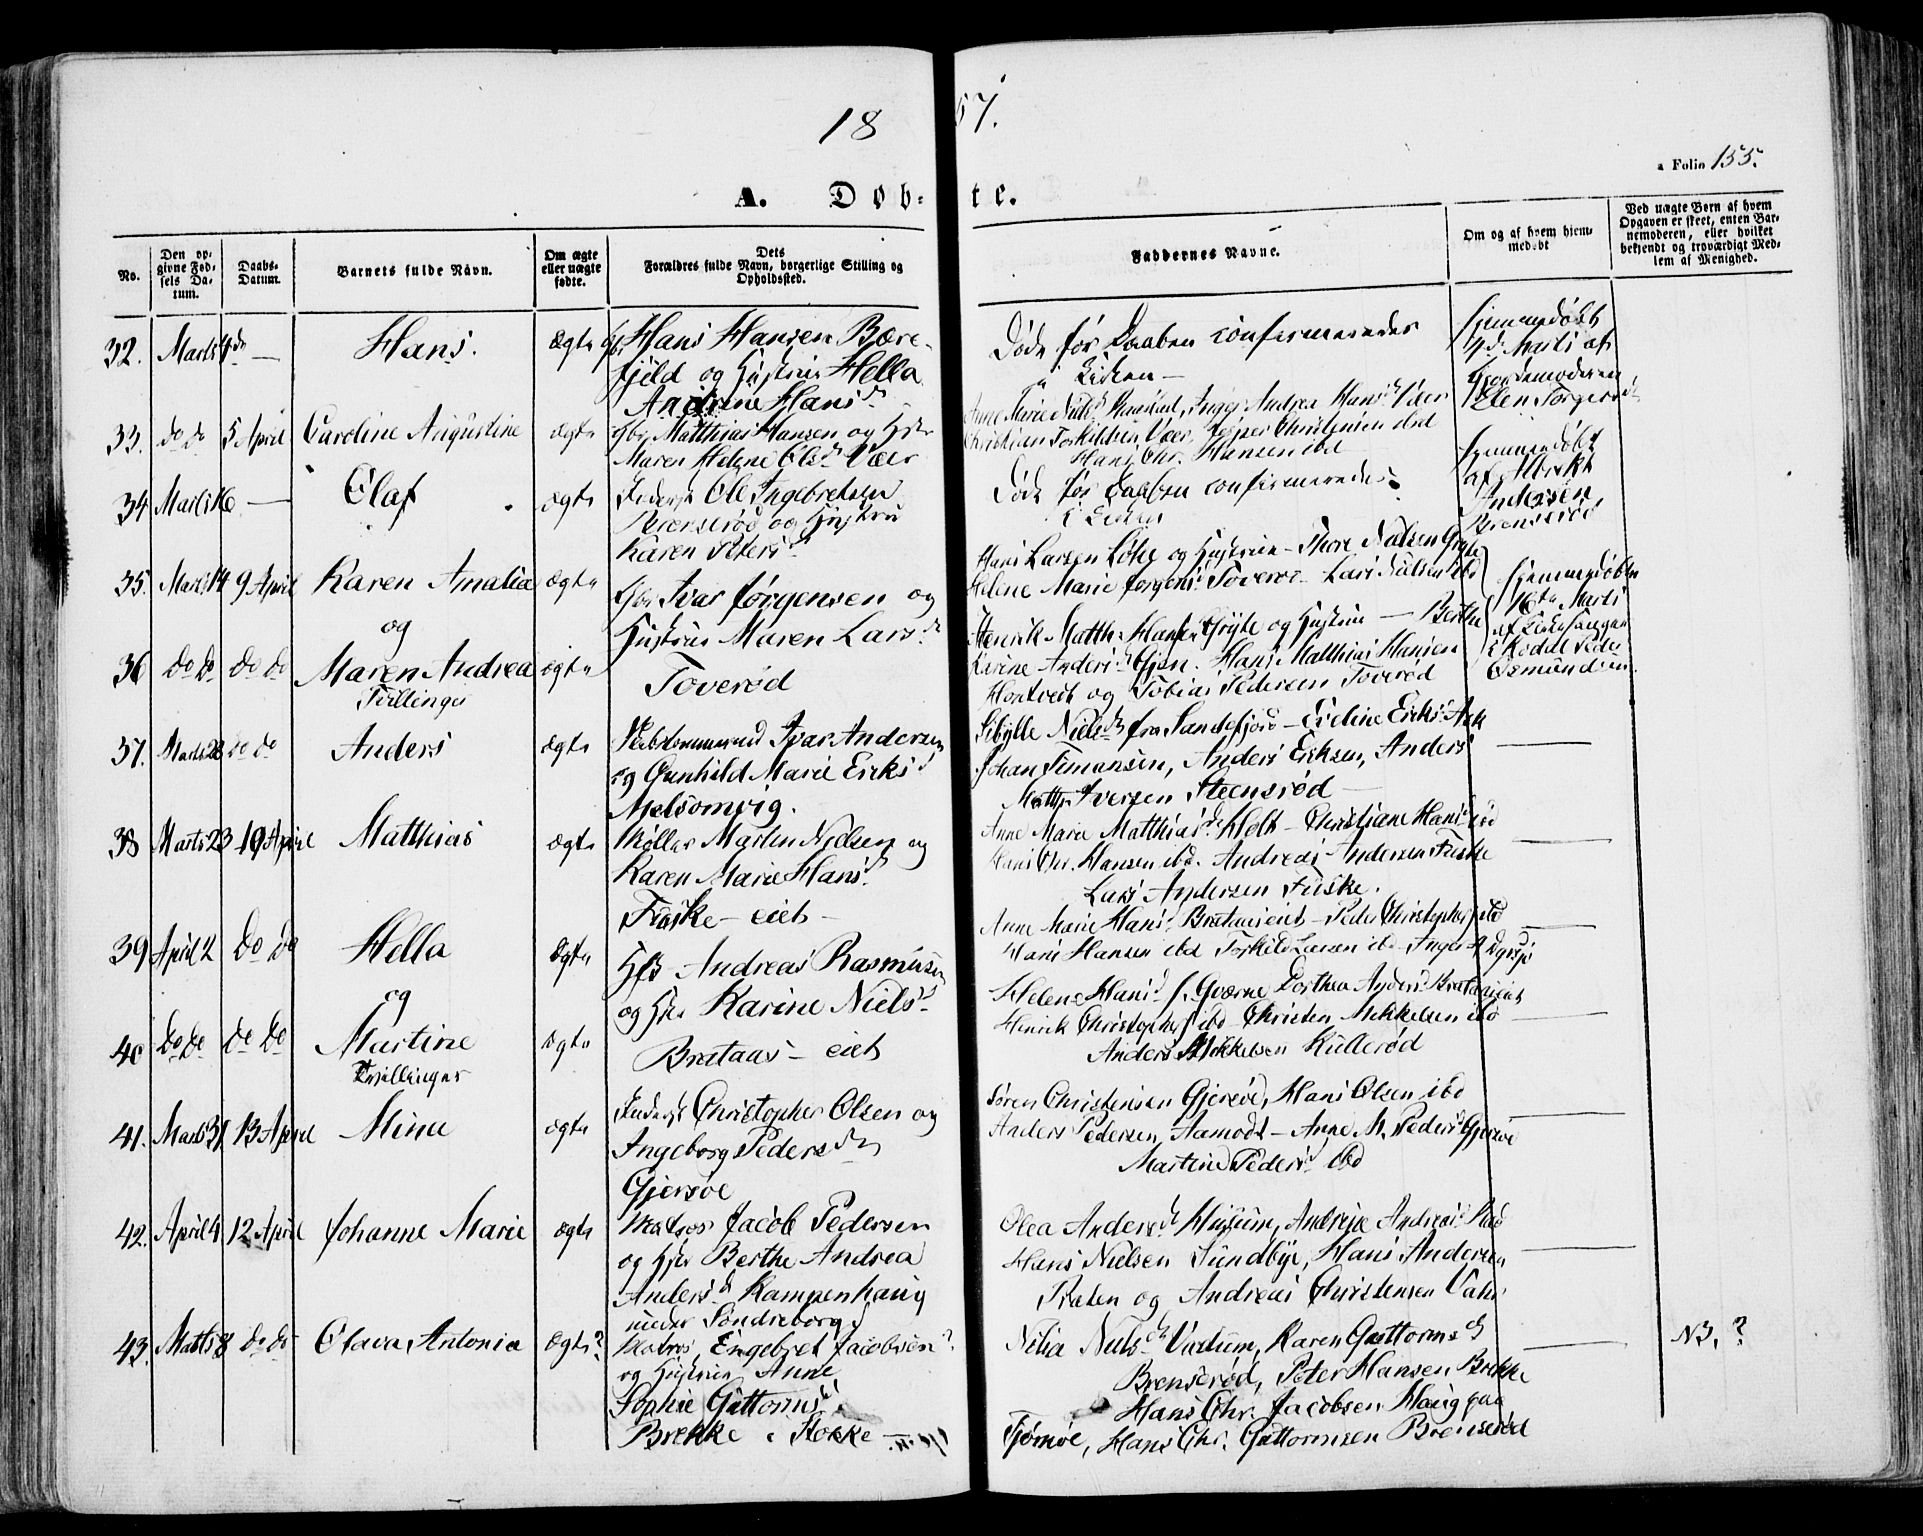 18 57.
a Folio 155.
A. Døb- te.
No.
Den op-
givne Fød-
sels Da-
tum.
Daabs-
Datum.
Barnets fulde Navn.
Om ægte
eller uægte
fødte.
Dets
Forældres fulde Navn, borgerlige Stilling og
Opholdssted.
Faddernes Navne.
Om og af hvem hjem-
medøbt
Ved uægte Børn af hvem
Opgaven er skeet, enten Bar-
nemoderen, eller hvilket
bekjendt og troværdigt Med-
lem af Menighed.
32. Marts 4de — Hans. ægte Gbr Hans Hansen Bære-
fjeld og Hustrue Hella
Andrine Hansd
Døde før Daaben confirmeredes
i Kirken —
Hjemmedøbt
4d Marts af
Gjordemoderen
Ellen Torgersd
33. do do 5 April Caroline Augustine ægte Gbr Matthias Hansen og Hstr
Maren Helene Olsd Vær
Anne Marie Nielsd, Inger Andrea Hansd Vær
Christian Torkildsen Vær, Jesper Christensen ibd
Hans Chr. Hansen ibd
34 Marts 16 — Olaf ægte Inderst Ole Ingebretsen
Brænserød og Hustru
Karen Petersd
Døde før Daaben confirmeredes
i Kirken
Hjemmedøbt
af
Andersen
Brenserød
35. Marts 14 9 April Karen Amalia ægte Gbr Ivar Jørgensen og
Hustrue Maren Larsd
Toverød
og
Hans Larsen Løke og Hustrue — Thore Nielsen Gryte
Helene Marie Jørgensd Toverød — Lars Nielsen ibd
Hjemmedøbte
16de Marts
af Kirkesanger
i Kodal Peder
Osmundsen.
36 do do do do Maren Andrea ægte
Tvillinger
Henrik Matth. Hansen Gryte og Hustrue — Berthe
Karine Andersd Gjen. Hans Matthias Hansen
Hontveit og Tobias Pedersen Toverød
37. Marts 28 do do Anders ægte Skibstømmermand Ivar Andersen
og Gunhild Marie Eriksd
Melsomvig.
Sibylle Nielsd fra Sandefjord — Eveline Eriksd Ask
Johan Simonsen, Anders Eriksen, Anders
Matth. Iversen Steensrød —
38 Marts 23 19 April Matthias ægte Møller Martin Nielsen og
Karen Marie Hansd
Fuske — eiet —
Anne Marie Matthiasd Holt — Christiane Hansd ibd
Hans Chr. Hansen ibd. Andreas Andersen Fuske
Lars Andersen Fuske.
39 April 2 do do Hella ægte Gbr Andreas Rasmusen
og Hstr Karine Nielsd
Brataas — eiet
og
Anne Marie Hansd Brataaseiet — Peder Christophers. ibd
Hans Hansen ibd Torkild Larsen ibd — Inger A
40 do do do do Martine ægte
Tvillinger
Helene Hansd f. Qværne Dorthea Andersd Brataaseiet
Henrik Christophers. ibd Christen Mikkelsen ibd
Anders Mikkelsen Kullerød
41. Marts 31 13 April Mine ægte Inderst Christopher Olsen og
Ingeborg Pedersdr
Gjersøe
Søren Christensen Gjersøe, Hans Olsen ibd
Anders Pedersen Aamodt — Anne M. Pedersd Gjersøe
Martine Pedersd ibd
42. April 4 12 April Johanne Marie ægte Matros Jacob Pedersen
og Hstr Berthe Andrea
Andersd Kampenhaug
under Søndreborge
Olea Andersd Husum, Andrine Andreasd
Hans Nielsen Sundbye, Hans Andersen
Præsten og Andreas Christensen
43. Marts 8 do do Olava Antonia ægte? Matros Engebret Jacobsen?
og Hustrue Anne
Sophie Guttormsd
Brekke i Stokke —
Nilia Nielsd Virsum, Karen Guttormsd
Brenserød, Peter Hansen Brekke
Hans Chr. Jacobsen Haug paa
Tjømøe, Hans Chr. Guttormsen Brenserød
NB. ?